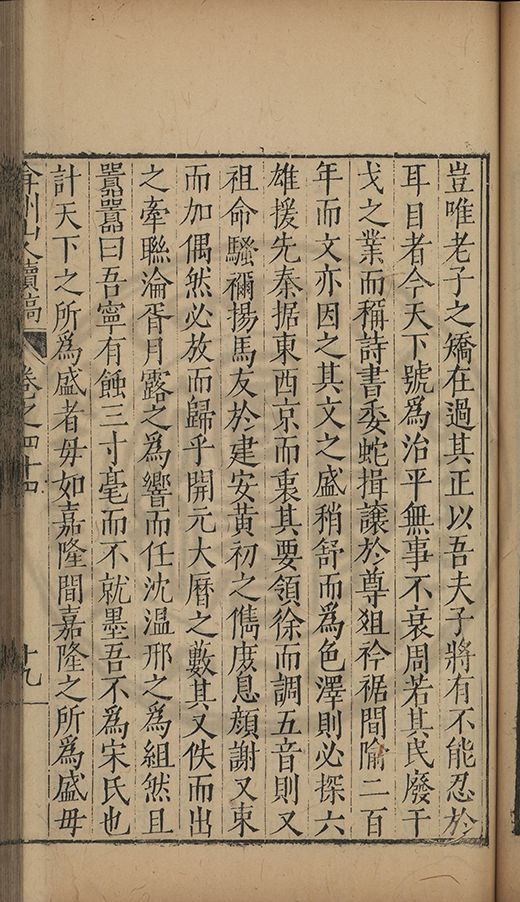 豈唯老子之矯在過其正以吾夫子將有不能忍於
耳目者今天下號為治平無事不衰周若其民廢干
戈之業而稱詩書委蛇揖讓於尊俎衿裾間隃二百
年而文亦因之其文之盛稍舒而為色澤則必探六
雄援先秦据東西京而裏其要領徐而調五音則又
祖命騷禰揚馬友於建安黃初之儁庋息顏謝又束
而加偶然必放而歸乎開元大曆之藪其又佚而出
之牽聯淪胥月露之為響而任沈温邢之為組然且
囂囂曰吾寧有蝕三寸毫而不就墨吾不為宋氏也
計天下之所為盛者毋如嘉隆間嘉隆之所為盛毋
弇州山人續稿 卷之四十四 十九